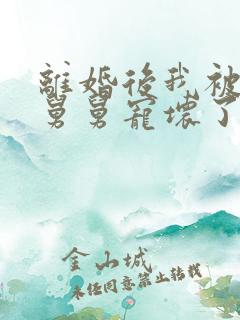 離婚後我被
舅舅寵壞了
金山城
未經同意禁止轉載